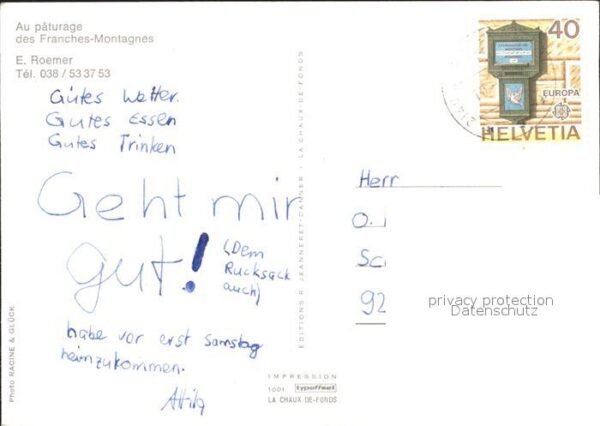 Au pâturage
des Franches-Montagnes
E. Roemer
Tél. 038 / 53 37 53
Gutes Wetter.
Gutes Essen
Gutes Trinken
Geht mir
gut!
(Dem
Rucksack
auch)
habe vor erst Samstag
heimzukommen.
Attila
Photo RACINE & GLÜCK
EDITIONS R. JEANNERET-DANNER · LA CHAUX-DE-FONDS
IMPRESSION
1001 typoffset
LA CHAUX-DE-FONDS
40
EUROPA
HELVETIA
Herr
O.
Sc
92
privacy protection
Datenschutz